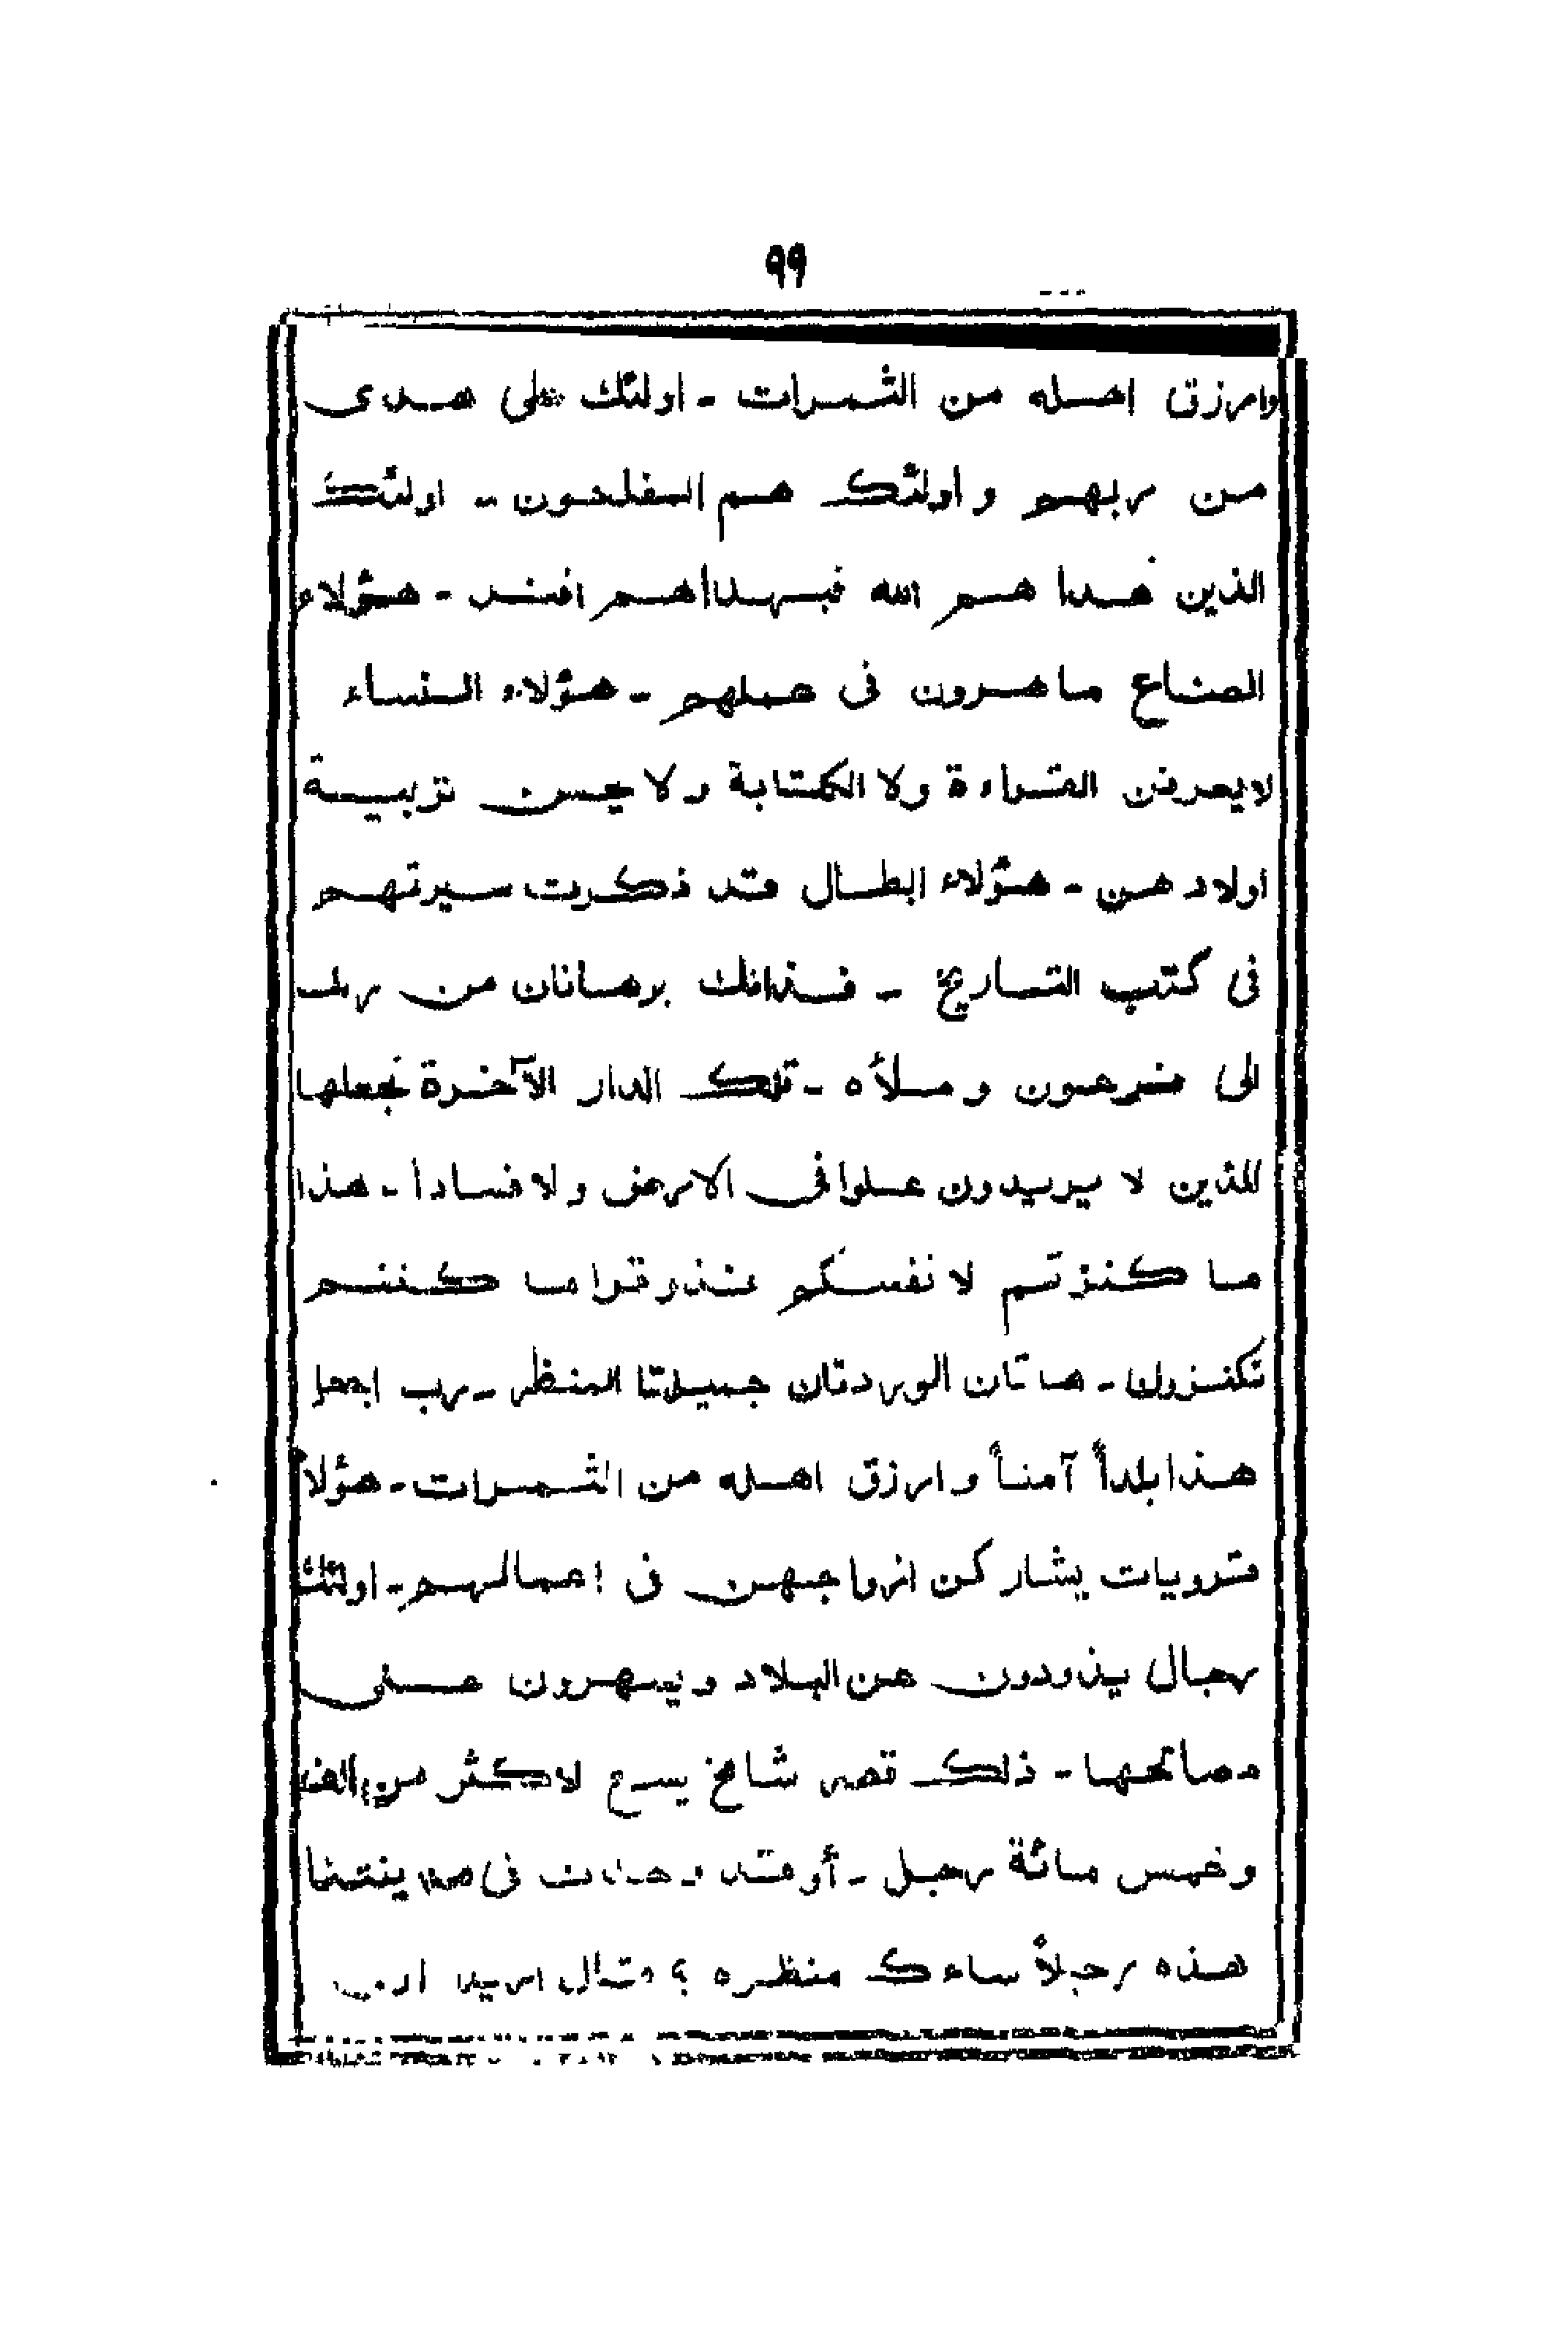 ٩٩
وارزق اهله من الثمرات ـ اولئك على هدى
من ربهم و اولئك هم المفلحون ـ اولئك
الذين هدا هم الله فبهداهم اقتد ـ هؤلاء
الصناع ماهرون فى عملهم ـ هؤلاء النساء
لايعرفن القراءة ولا الكتابة ولا يحسن تربية
اولاد هن ـ هؤلاء ابطال قد ذكرت سيرتهم
فى كتب التاريخ ـ فذانك برهانان من ربك
الى فرعون و ملأه ـ تلك الدار الآخرة نجعلها
للذين لا يريدون علوا فى الارض و لا فسادا ـ هذا
ما كنزتم لا نفسكم فذوقوا ما كنتم
تكنزون ـ هاتان الوردتان جميلتا المنظر ـ رب اجعل
هذا بلداً آمناً و ارزق اهله من الثمرات ـ هؤلا
قرويات يشاركن ازواجهن فى اعمالهم ـ اولئك
رجال يذودون عن البلاد و يسهرون على
مصالحها ـ ذلك قصر شامخ يسع لاكثر من الف
و خمس مائة رجل ـ أو قد وجدت فى مدينتنا
هذه رجلاً ساءك منظره ؟ قال اريد ان